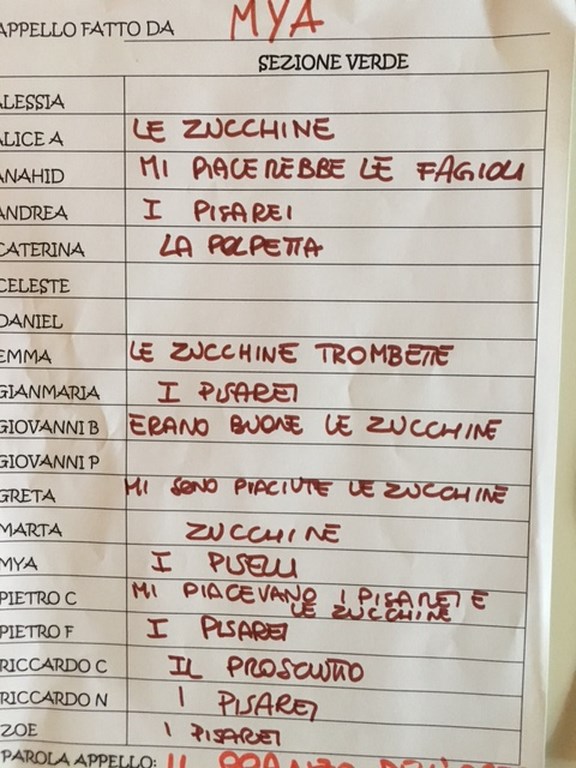 APPELLO FATTO DA MYA
SEZIONE VERDE
ALESSIA
ALICE A LE ZUCCHINE
ANAHID MI PIACEREBBE LE FAGIOLI
ANDREA I PISAREI
CATERINA LA POLPETTA
CELESTE
DANIEL
EMMA LE ZUCCHINE TROMBETTE
GIANMARIA I PISAREI
GIOVANNI B ERANO BUONE LE ZUCCHINE
GIOVANNI P
GRETA MI SONO PIACIUTE LE ZUCCHINE
MARTA ZUCCHINE
MYA I PISELLI
PIETRO C MI PIACEVANO I PISAREI E
LE ZUCCHINE
PIETRO F I PISAREI
RICCARDO C IL PROSCIUTTO
RICCARDO N I PISAREI
ZOE I PISAREI
PAROLA APPELLO: IL PRANZO